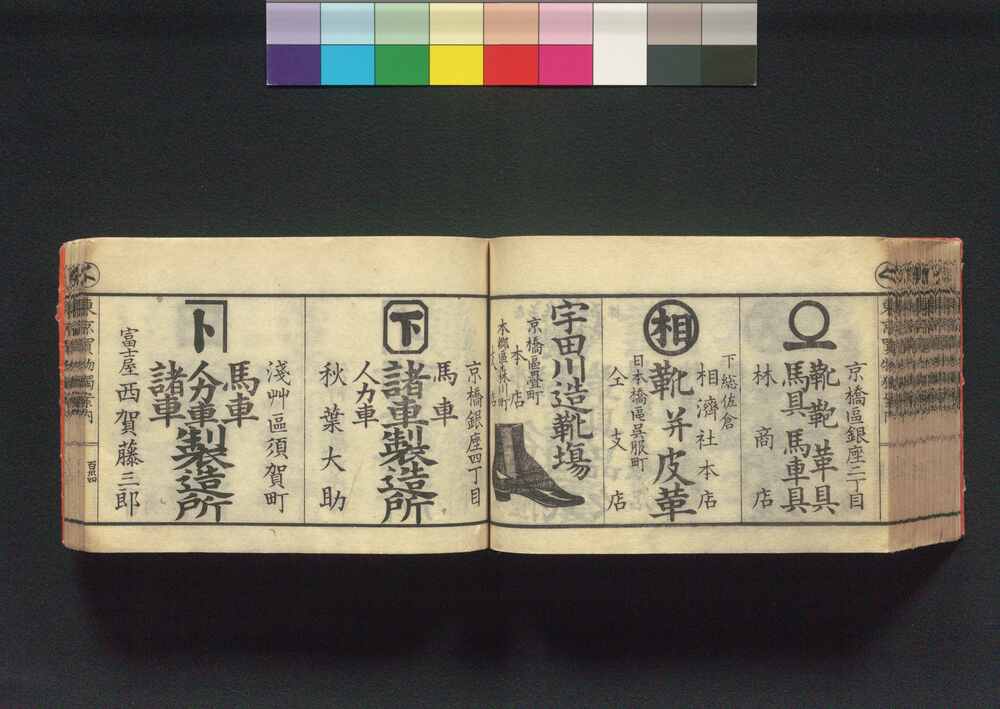 京橋區銀座二丁目
靴 鞄 革具
馬具 馬車具
林商店
下総佐倉
相濟社本店
相
靴并皮革
日本橋區呉服町
仝支店
宇田川造靴場
京橋區疊町
本店
本郷區森川町
京橋銀座四丁目
馬車
下
諸車製造所
人力車
秋葉大助
淺艸區須賀町
馬車
ト
人力車製造所
諸車
富士屋 西賀藤三郎
東京買物獨案内